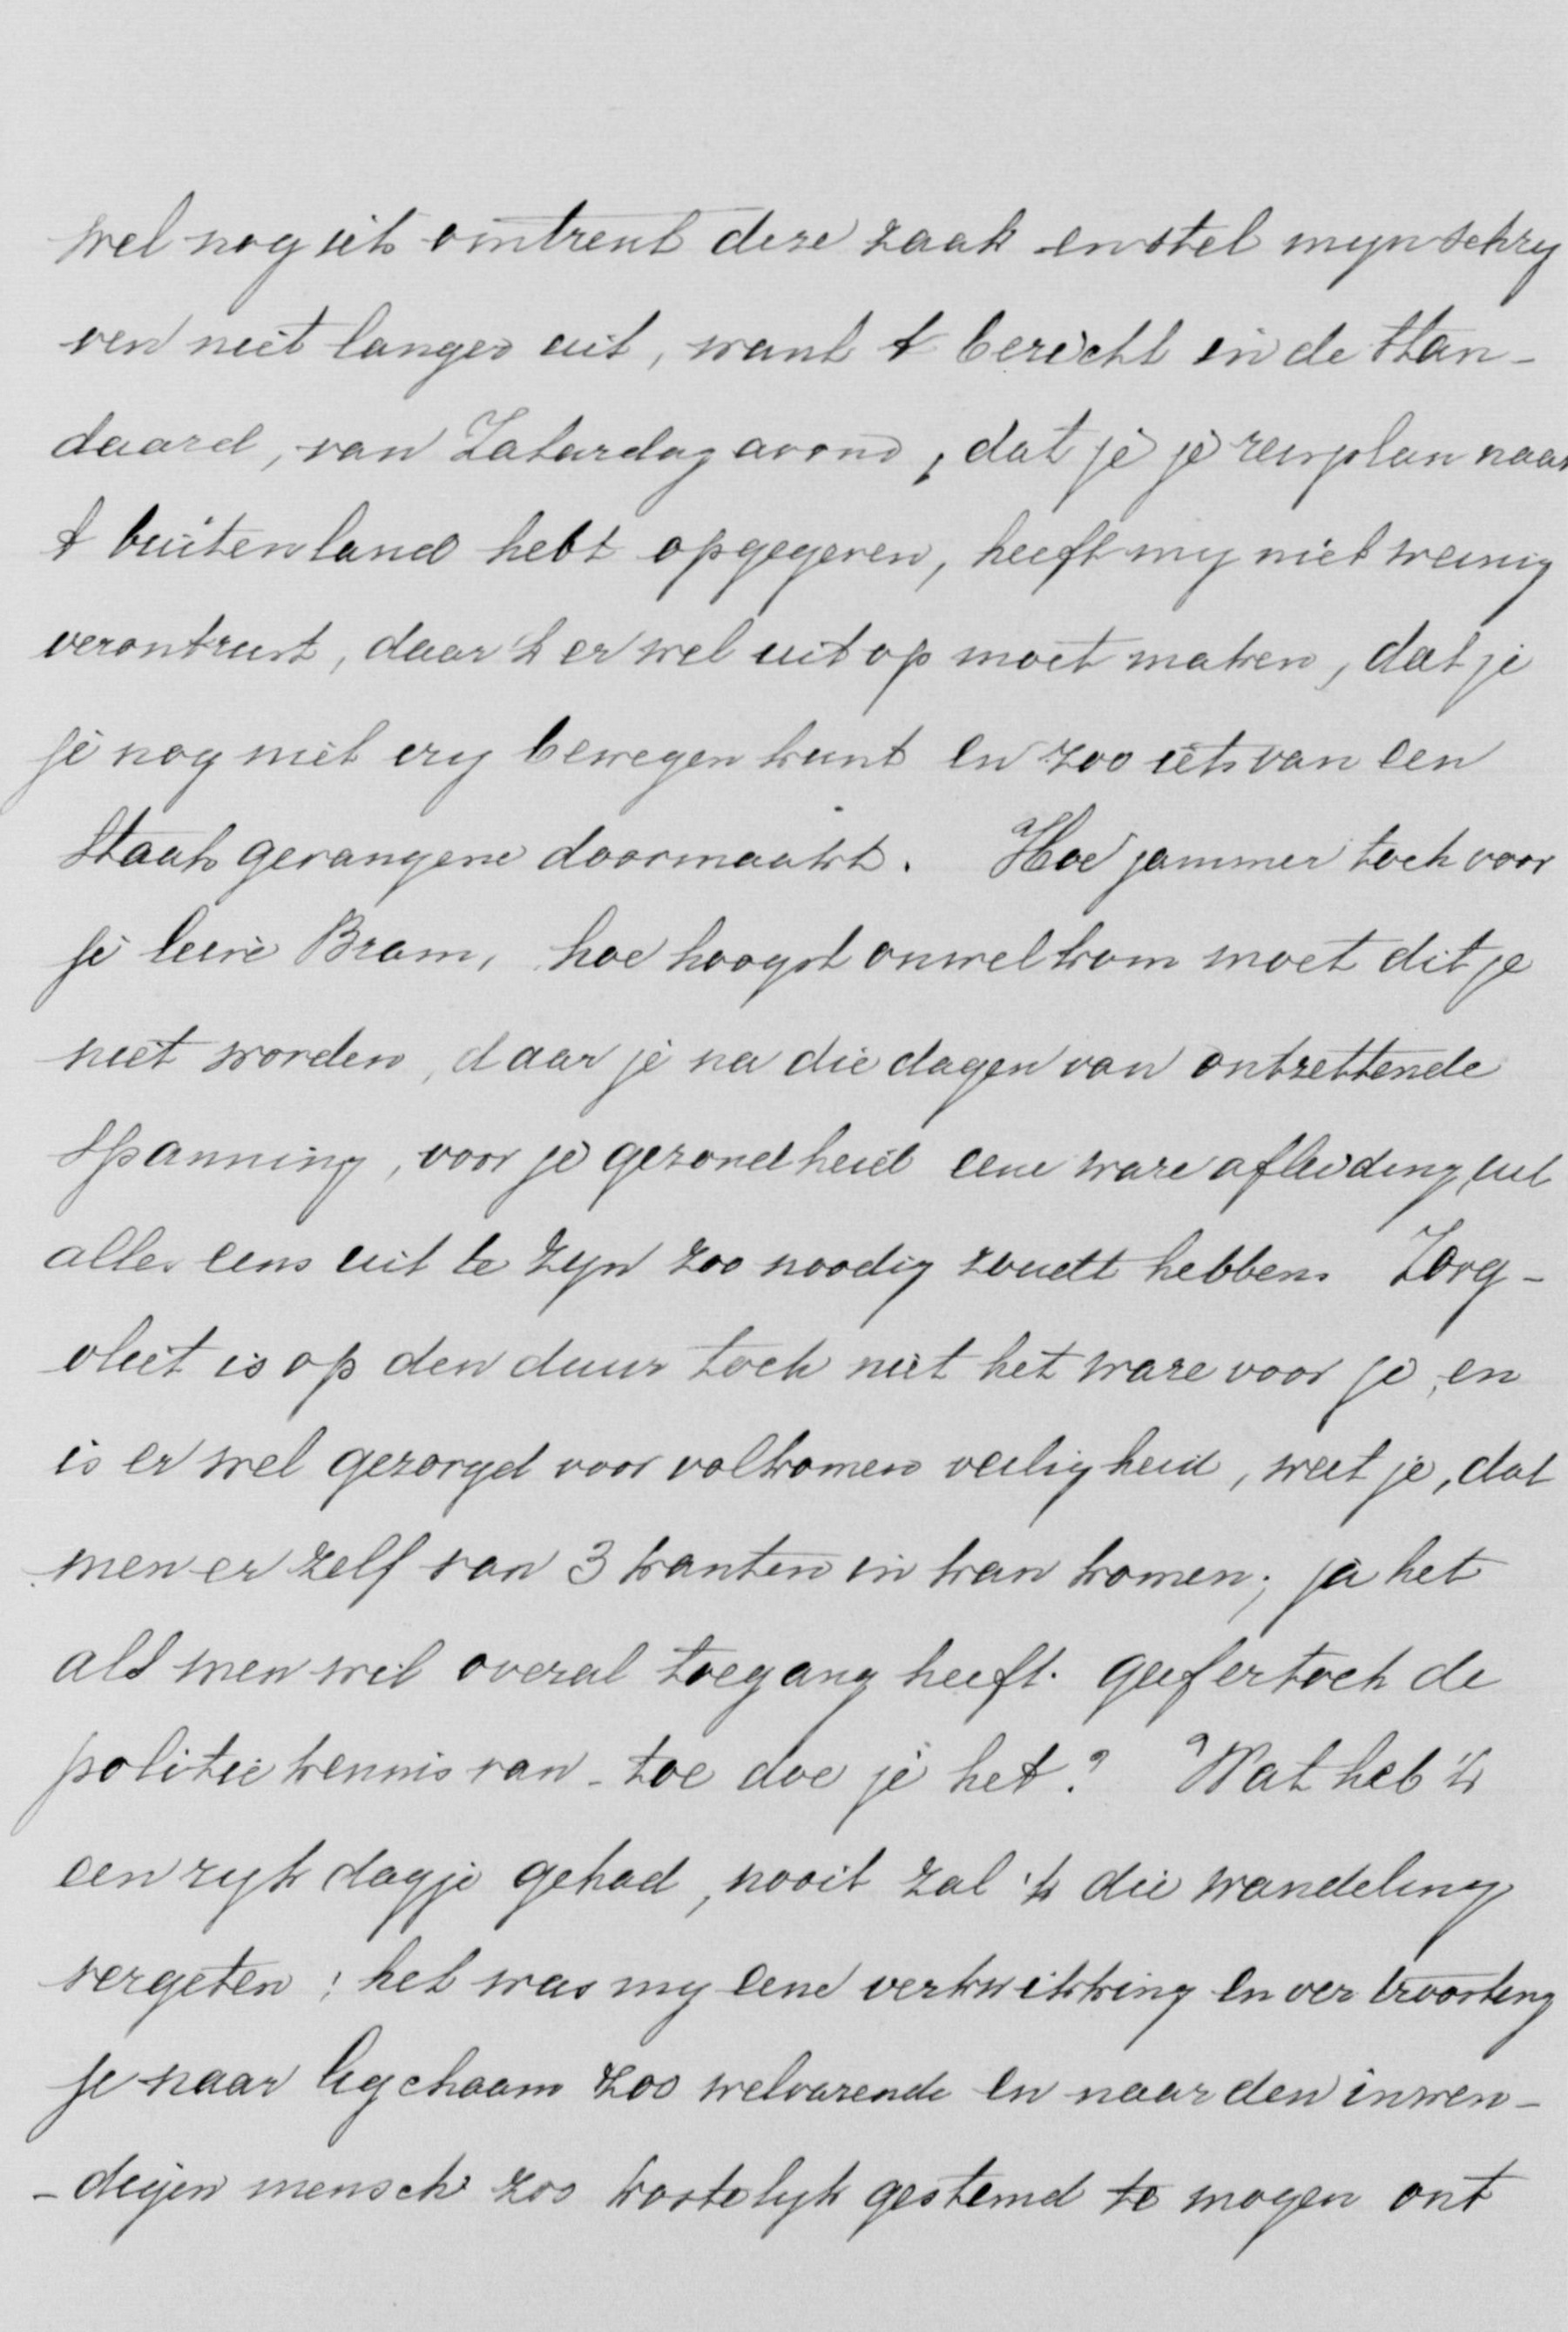 wel nog iets omtrent deze zaak en stel mijn schrij
ven niet langer uit, want 't bericht in de Stan-
daard, van Zaturdag avond, dat je je reisplan naar
't buitenland hebt opgegeven, heeft mij niet weinig
verontrust, daar 'k er wel uit op moet maken, dat je
je nog niet vrij bewegen kunt en zoo iets van een
Staats gevangene doormaakt. Hoe jammer toch voor
je lieve Bram, hoe hoogst onwelkom moet dit je
niet worden, daar je na die dagen van ontzettende
Spanning, voor je gezondheid eene ware afleiding, uit
alles eens uit te zijn zoo noodig zoudt hebben. Zorg-
vliet is op den duur toch niet het ware voor je, en
is er wel gezorgd voor volkomen veiligheid, weet je, dat
men er zelf van 3 kanten in kan komen; ja het
als men wil overal toegang heeft. geef er toch de
politie kennis van - toe doe je het? Wat heb 'k
een rijk dagje gehad, nooit zal 'k die wandeling
vergeten; het was mij eene verkwikking en vertroosting
je naar ligchaam zoo welvarende en naar den inwen-
-digen mensch zoo kostelijk gestemd te mogen ont